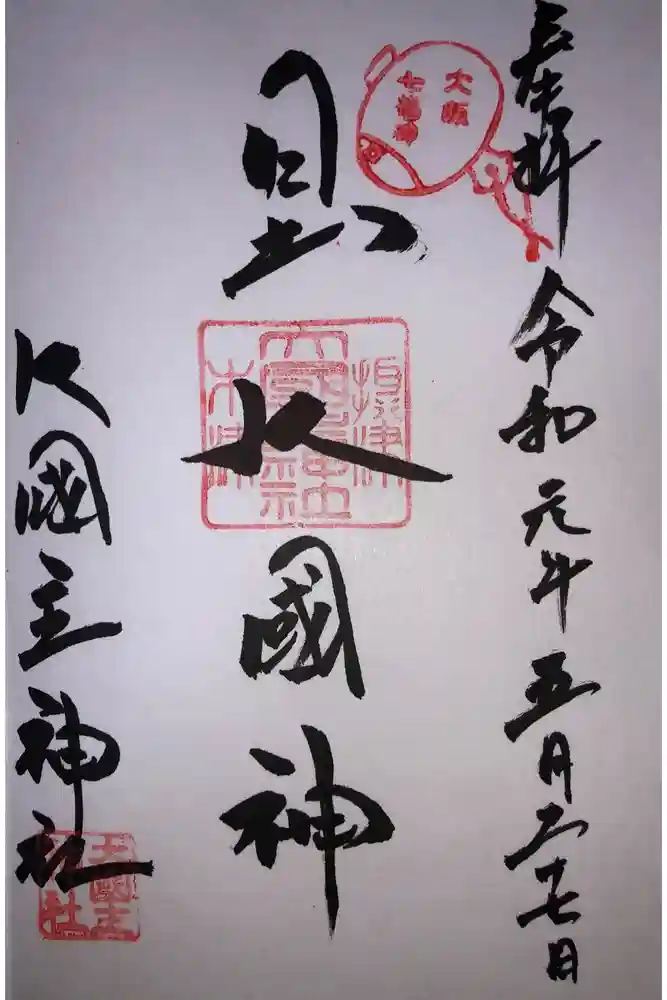 奉拝 令和元年五月二十七日
大阪
七福神
日出大國神
摂津
大國主神社
木津
大國主神社
大國主
神社